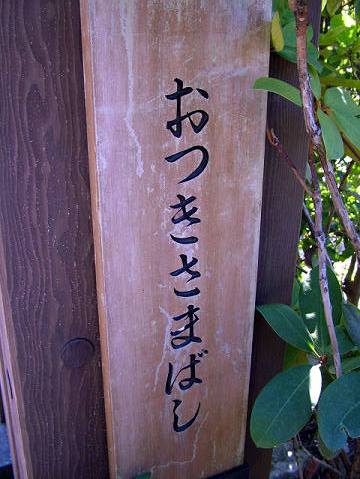 おつきさまばし